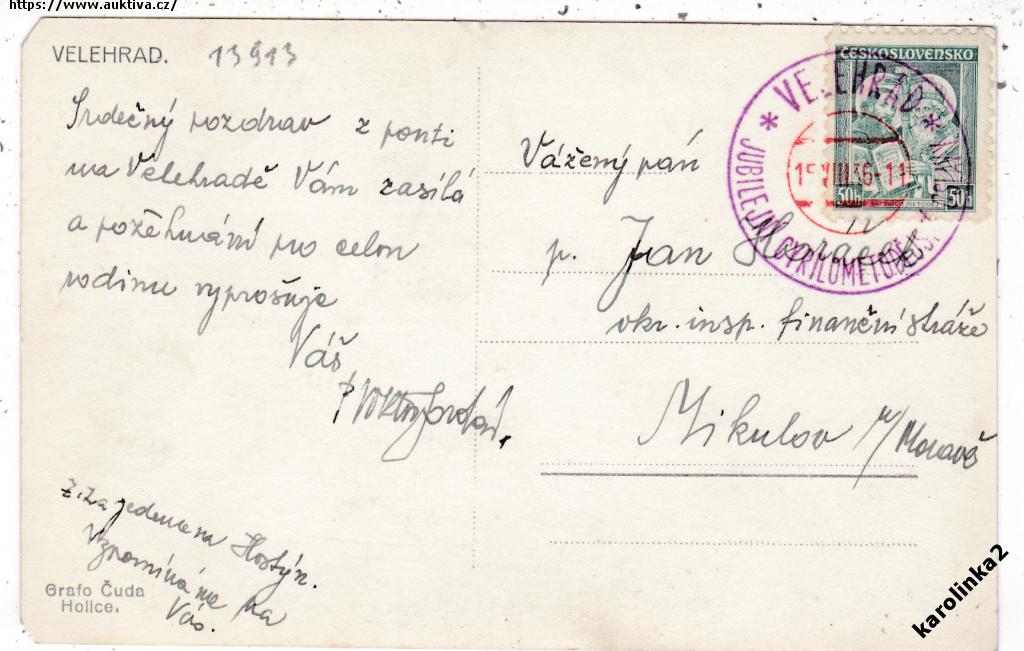 https://www.auktiva.cz/
VELEHRAD. 13913
Srdečný pozdrav z pouti
na Velehradě Vám zasílá
a požehnání pro celou
rodinu vyprošuje
Váš
P.
Z. Zajedeme na Hostýn.
Vzpomínáme na
Vás.
Grafo Čuda
Holice.
ČESKOSLOVENSKO
50h 50h
* VELEHRAD *
JUBILEJNÍ CYRILOMETODĚJSK
15 VIII 36-11
Vážený pán
p. Jan
okr. insp. finanční stráže
Mikulov n/Moravě
karolinka2